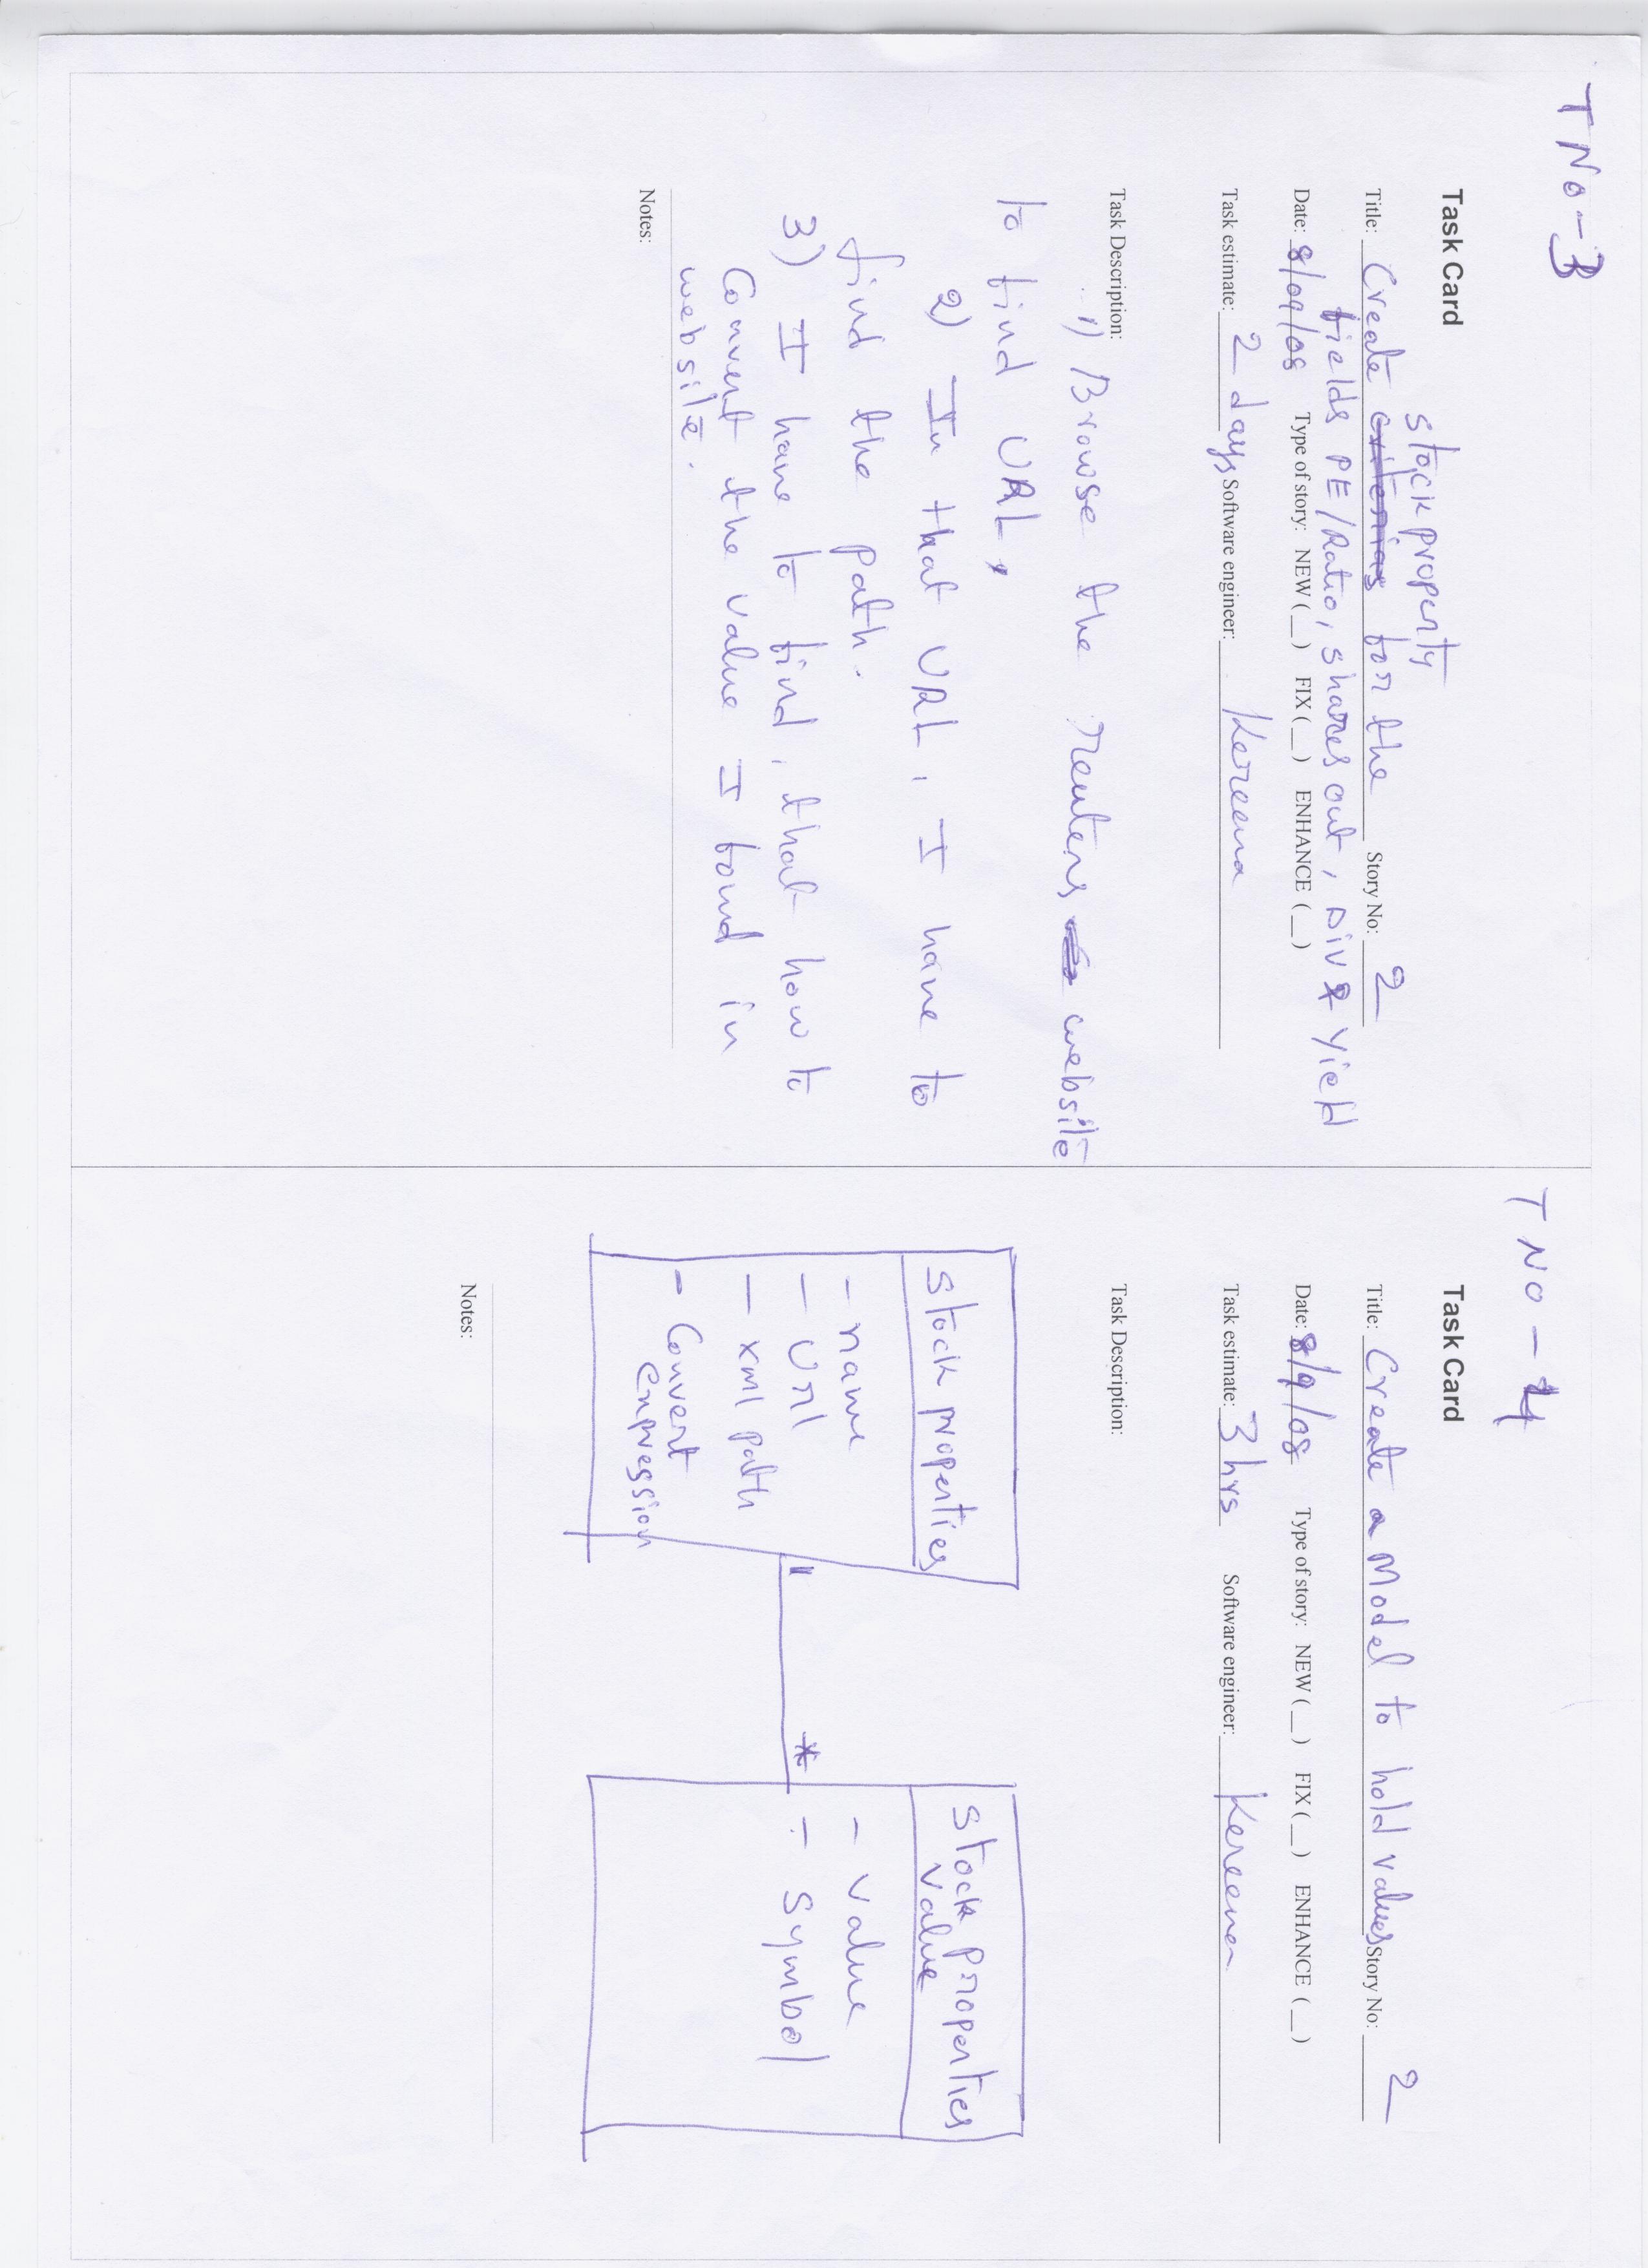 TNo-3
Task Card
stock property
Title: Create criterias for the Story No: 2
fields PE/Ratio, shares out, Div & Yield
Date: 8/09/08 Type of story: NEW ( _ ) FIX ( _ ) ENHANCE ( _ )
Task estimate: 2 days Software engineer: Kereena
Task Description:
1) Browse the reuters website
to find URL,
2) In that URL, I have to
find the path.
3) I have to find, that how to
Convert the value I found in
website.
Notes:
TNO-4
Task Card
Title: Create a Model to hold values Story No: 2
Date: 8/9/08 Type of story: NEW ( _ ) FIX ( _ ) ENHANCE ( _ )
Task estimate: 3 hrs Software engineer: Kereena
Task Description:
stock properties
- name
- url
- xml path
- Convert
expression
*
stock properties
value
- value
- symbol
Notes: